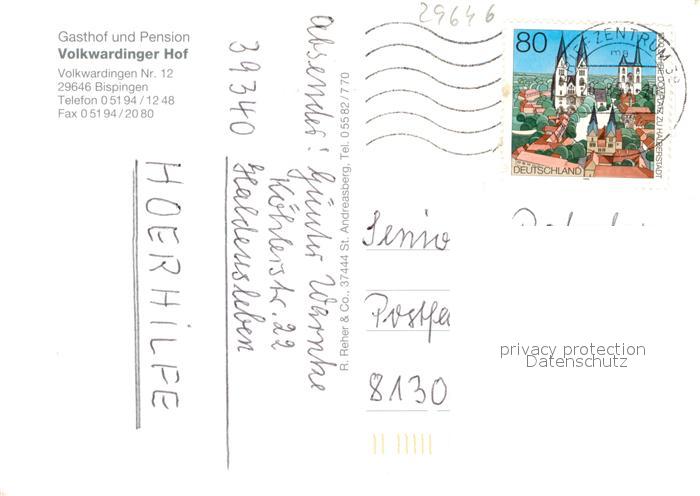 29646
Gasthof und Pension
Volkwardinger Hof
Volkwardingen Nr. 12
29646 Bispingen
Telefon 0 51 94 / 12 48
Fax 0 51 94 / 20 80
HOERHILFE
Absender: Günter Warnke
Köhlerstr. 22
39340 Haldensleben
R. Reher & Co., 37444 St. Andreasberg, Tel. 0 55 82 / 770
80
DEUTSCHLAND
ZENTRUM 39
Senio
Postfa
8130
privacy protection
Datenschutz